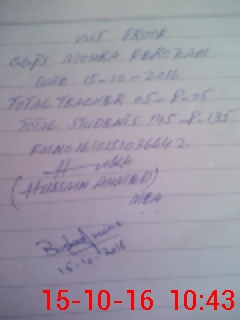 VISIT PROOF
GGPS MOHRA FEROZAN
DATE 15-10-2016
TOTAL TEACHER 05-P-05
TOTAL STUDENTS 145-P-135
(HUSSAIN AHMED)
15-10-2016
15-10-16 10:43